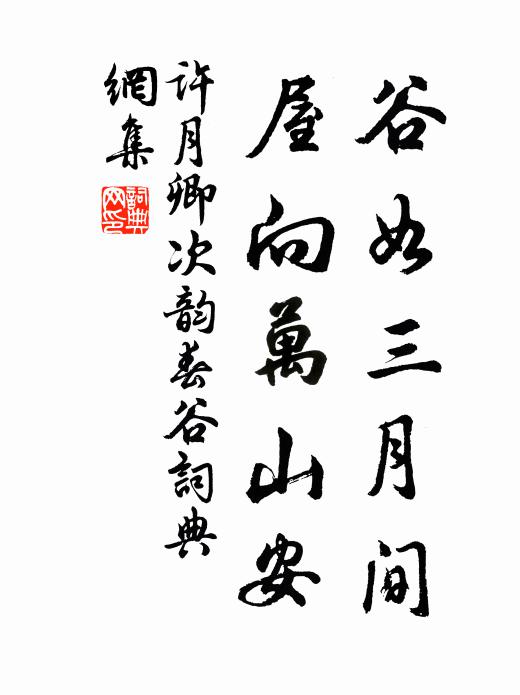 谷如三月间
屋向萬山安
許月卿次韵春谷詞典
網集
詞典網印